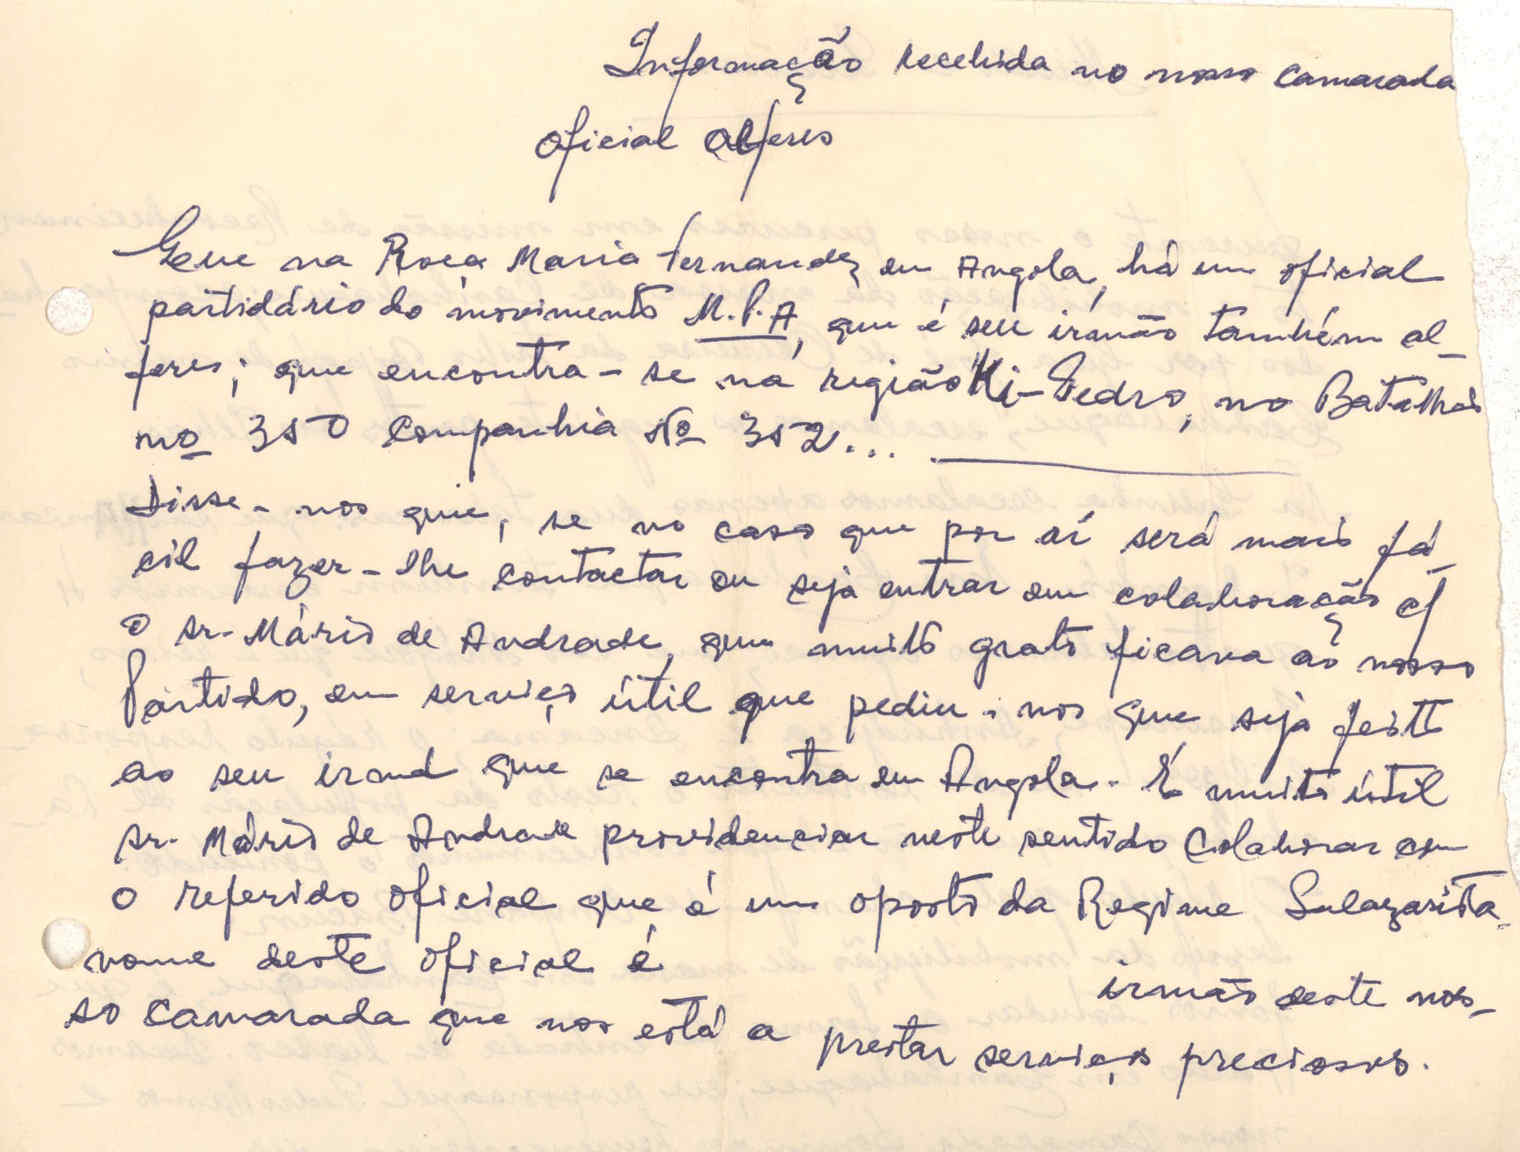 Informação recebida no nosso camarada
oficial alferes
Que na Roça Maria Fernandez em Angola, há um oficial
partidário do movimento M.P.A, que é seu irmão também al-
feres; que encontra-se na região Ki-Pedro, no Batalhão
nº 350 Companhia Nº 352...
Disse-nos que, se no caso que por aí será mais fá-
cil fazer-lhe contactar ou seja entrar em colaboração c/
o sr. Mário de Andrade, que muito grato ficava ao nosso
Partido, em serviço útil que pediu-nos que seja feito
ao seu irmão que se encontra em Angola. É muito útil
sr. Mário de Andrade providenciar neste sentido Colaborar com
o referido oficial que é um oposto da Regime Salazarista.
nome deste oficial é
irmão deste nos-
so camarada que nos está a prestar serviços preciosos.